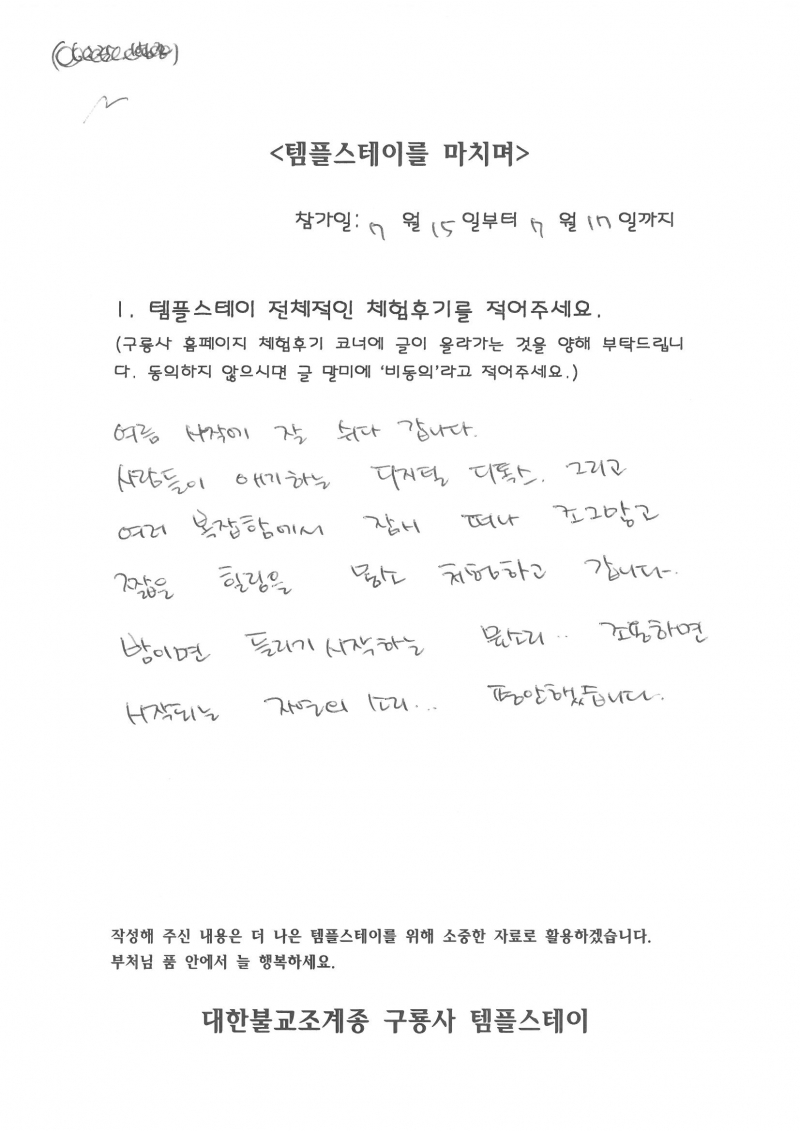 <템플스테이를 마치며>
참가일: 7 월 15 일부터 7 월 17 일까지
1. 템플스테이 전체적인 체험후기를 적어주세요.
(구룡사 홈페이지 체험후기 코너에 글이 올라가는 것을 양해 부탁드립니
다. 동의하지 않으시면 글 말미에 '비동의'라고 적어주세요.)
여름 시작에 잘 쉬다 갑니다.
사람들이 얘기하는 디지털 디톡스. 그리고
여러 복잡함에서 잠시 떠나 조그맣고
짧은 힐링을 몸소 체험하고 갑니다.
밤이면 들리기 시작하는 물소리.. 조용하면
시작되는 자연의 소리... 평안했습니다.
작성해 주신 내용은 더 나은 템플스테이를 위해 소중한 자료로 활용하겠습니다.
부처님 품 안에서 늘 행복하세요.
대한불교조계종 구룡사 템플스테이